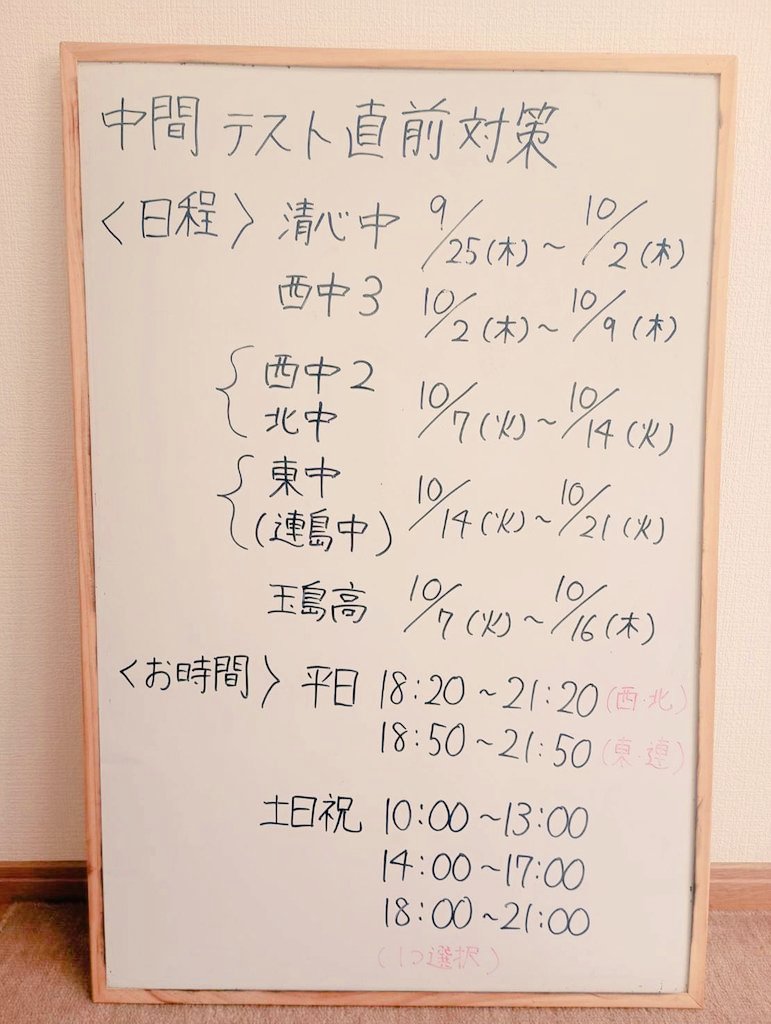 中間テスト直前対策
〈日程〉 清心中 9/25(木)~10/2(木)
西中3 10/2(木)~10/9(木)
西中2
北中 10/7(火)~10/14(火)
東中
(連島中) 10/14(火)~10/21(火)
玉島高 10/7(火)~10/16(木)
〈お時間〉 平日 18:20~21:20(西・北)
18:50~21:50(東・連)
土日祝 10:00~13:00
14:00~17:00
18:00~21:00
(1つ選択)